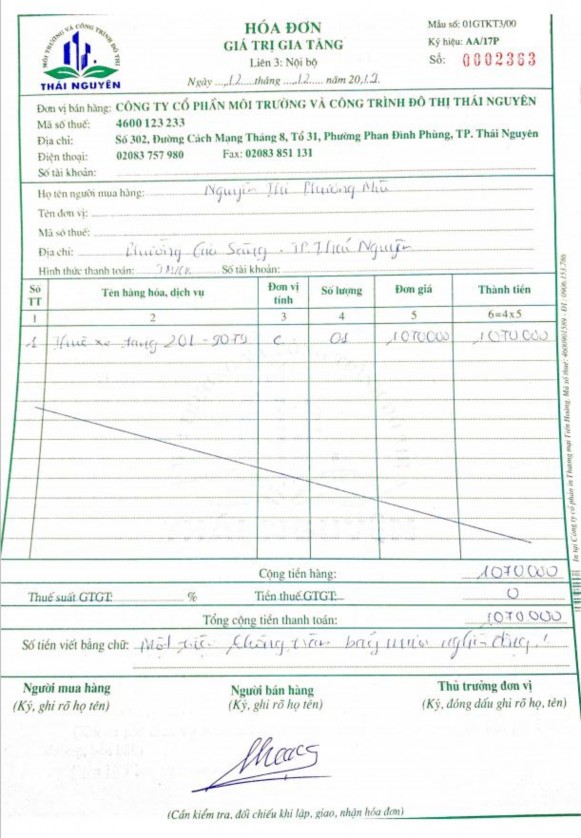 MÔI TRƯỜNG VÀ CÔNG TRÌNH ĐÔ THỊ
THÁI NGUYÊN
HÓA ĐƠN
GIÁ TRỊ GIA TĂNG
Liên 3: Nội bộ
Ngày 12 tháng 12 năm 2019
Mẫu số: 01GTKT3/00
Ký hiệu: AA/17P
Số: 0002363
Đơn vị bán hàng: CÔNG TY CỔ PHẦN MÔI TRƯỜNG VÀ CÔNG TRÌNH ĐÔ THỊ THÁI NGUYÊN
Mã số thuế: 4600 123 233
Địa chỉ: Số 302, Đường Cách Mạng Tháng 8, Tổ 31, Phường Phan Đình Phùng, TP. Thái Nguyên
Điện thoại: 02083 757 980 Fax: 02083 851 131
Số tài khoản:
Họ tên người mua hàng: Nguyễn Thị Phương
Tên đơn vị:
Mã số thuế:
Địa chỉ: Phường Gia Sàng - TP. Thái Nguyên
Hình thức thanh toán: TM/CK Số tài khoản:
Số TT Tên hàng hóa, dịch vụ Đơn vị tính Số lượng Đơn giá Thành tiền
1 2 3 4 5 6=4x5
1 Thuê xe tang 20L - 9079 C 01 1070000 1070000
Cộng tiền hàng: 1070000
Thuế suất GTGT: % Tiền thuế GTGT: 0
Tổng cộng tiền thanh toán: 1070.000
Số tiền viết bằng chữ: Một triệu không trăm bảy mươi nghìn đồng!
Người mua hàng Người bán hàng Thủ trưởng đơn vị
(Ký, ghi rõ họ tên) (Ký, ghi rõ họ tên) (Ký, đóng dấu ghi rõ họ, tên)
(Cần kiểm tra, đối chiếu khi lập, giao, nhận hóa đơn)